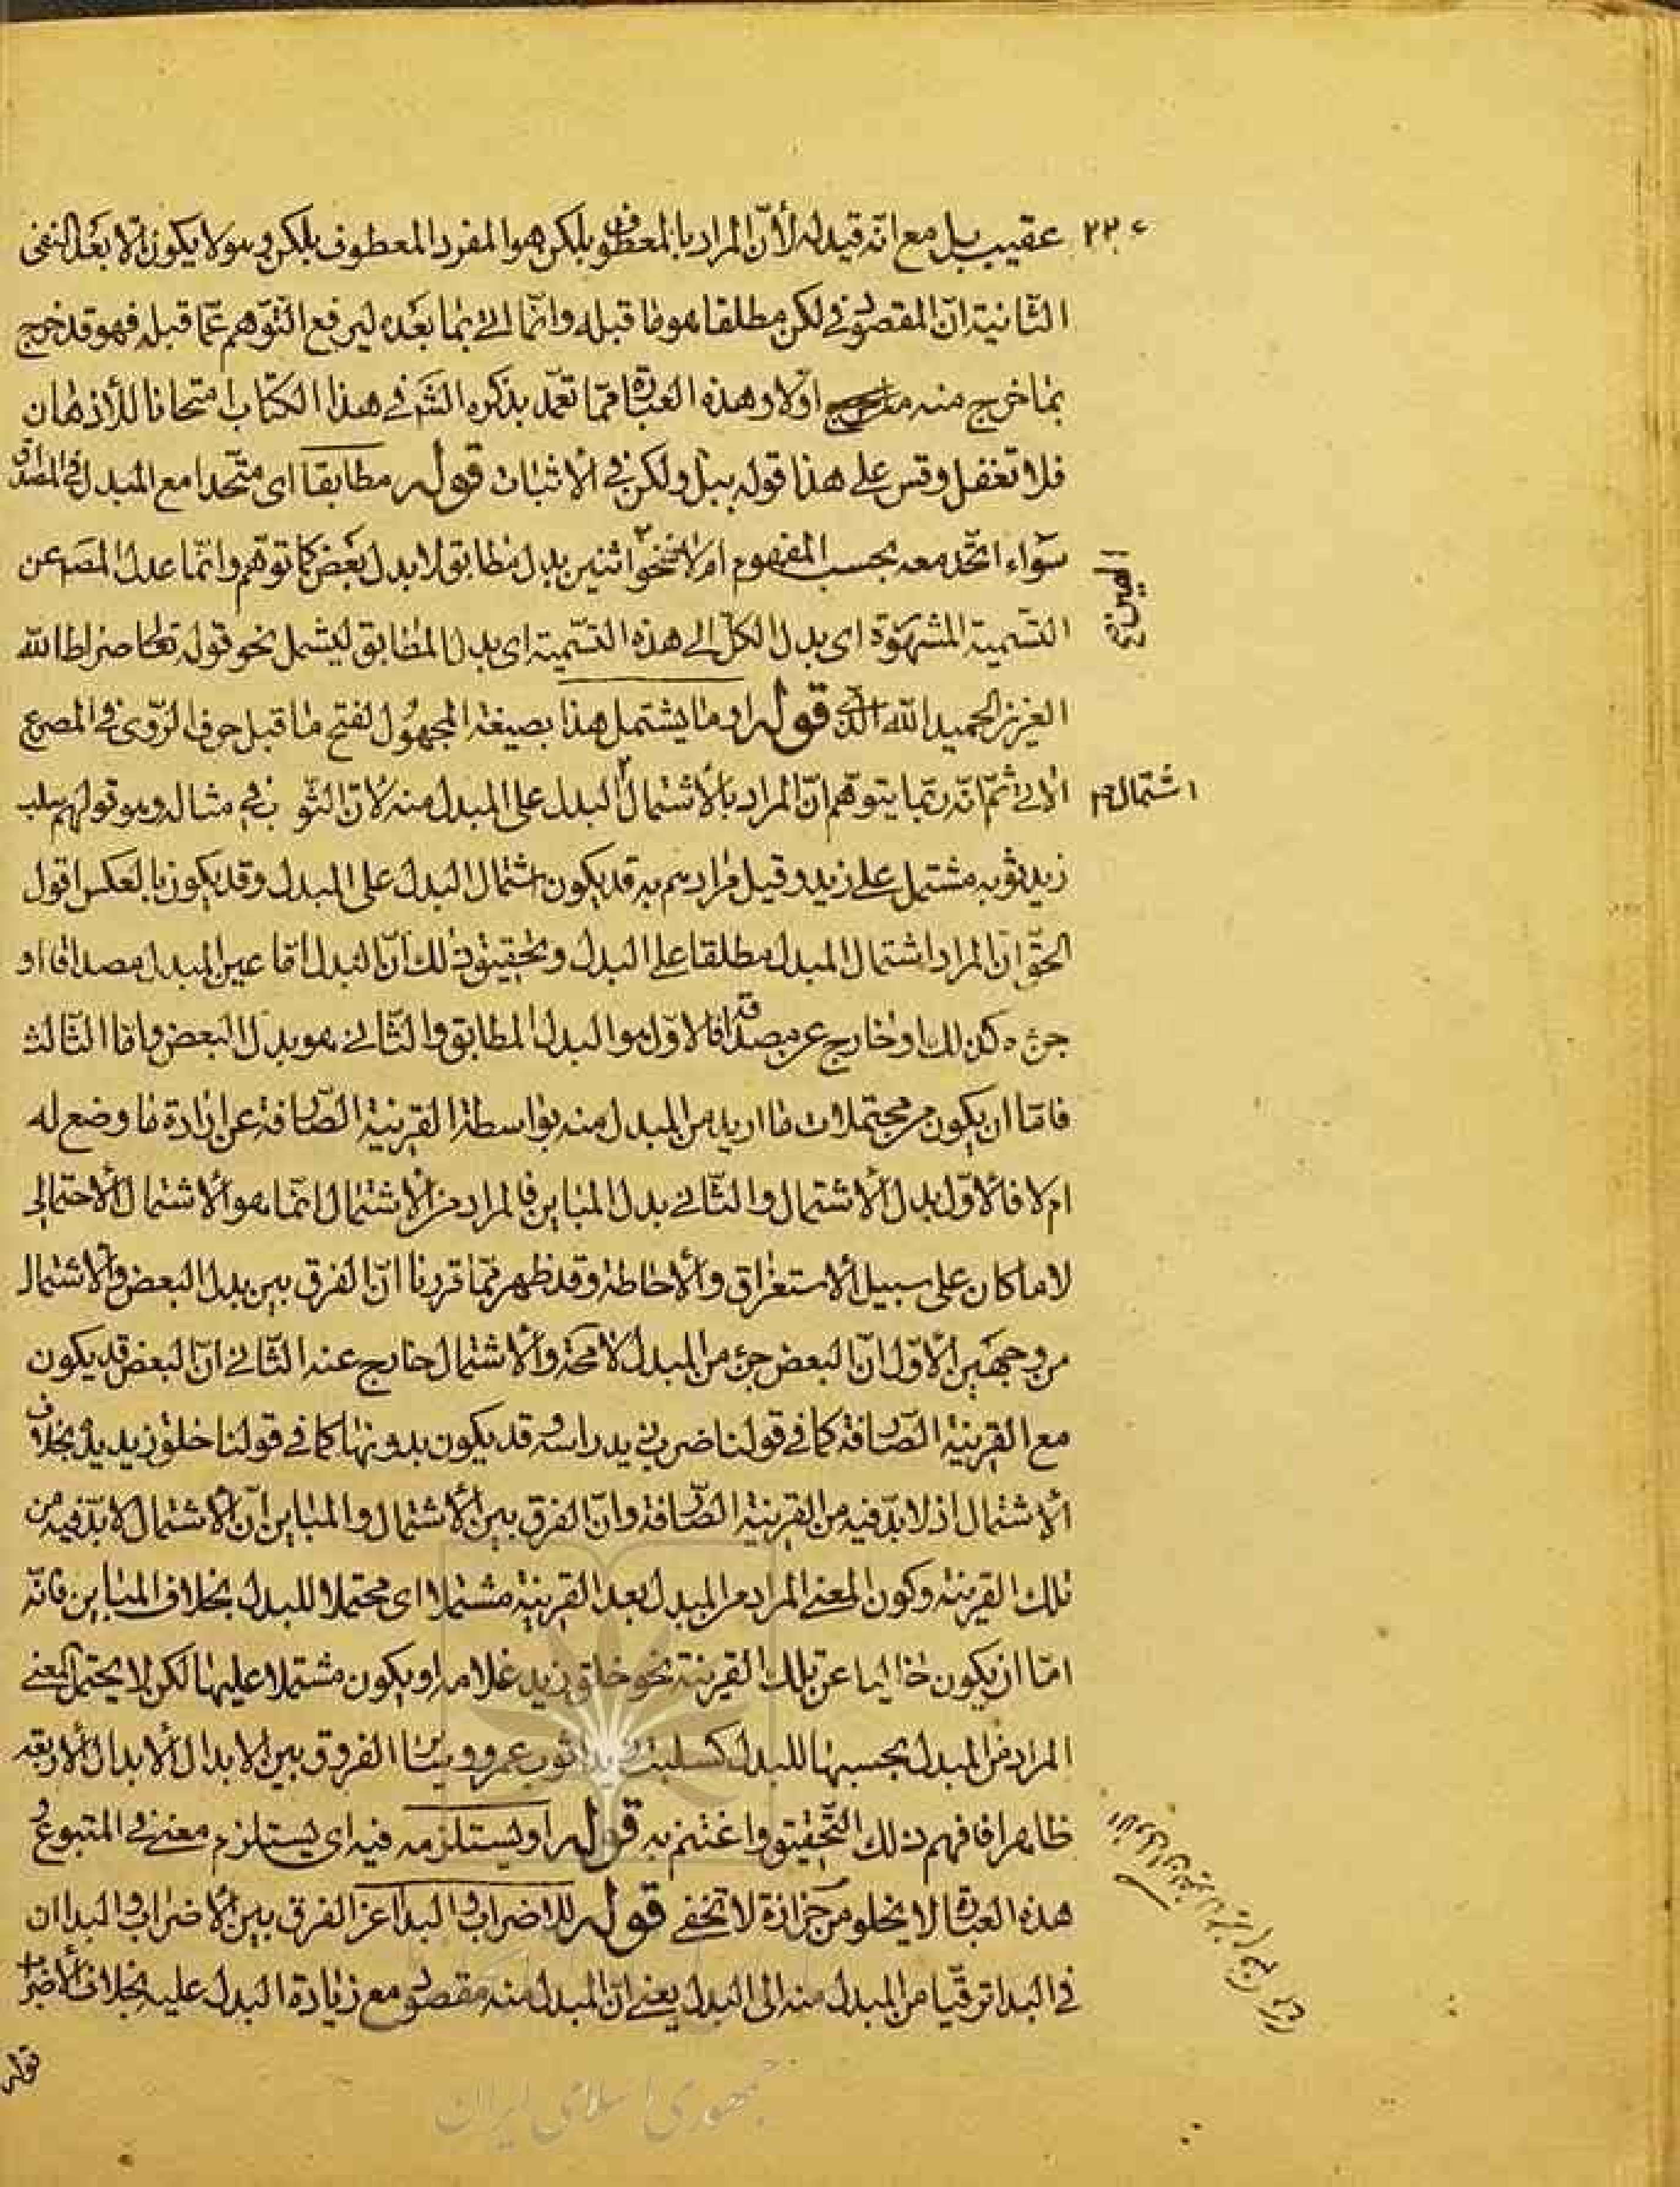 عقيب بل مع انّه قيد له لأنّ المراد بالمعطوف بلكن هو المفرد المعطوف بلكن وهو لا يكون الا بعد النفى
الثّانية انّ المقصود فى لكن مطلقا هو ما قبله وانّما اتى بما بعده ليرفع التّوهم عمّا قبله فهو قد خرج
بما خرج منه اوّلا وهذه العبارة ممّا تعمّد بذكره الشّ فى هذا الكتاب امتحانا للأذهان
فلا تغفل وقس على هذا قوله ببل ولكن فى الأثبات قوله مطابقا اى متّحدا مع المبدل فى المصداق
سوآء اتّحد معه بحسب المفهوم ام لا فنحو اثنين بدل مطابق لا بدل بعض كما توهّم وانّما عدل المصه عن
التّسمية المشهورة اى بدل الكلّ الى هذه التّسمية اى بدل المطابق ليشمل نحو قوله تعا صراط الله
العزيز الحميد الله الّذى قوله او ما يشتمل هذا بصيغة المجهول لفتح ما قبل حرف الرّوى فى المصرع
الأتى ثمّ انّه ربّما يتوهّم انّ المراد بالأشتمال البدل على المبدل منه لأنّ الثّوب فى مثاله وهو قولهم سلب
زيد ثوبه مشتمل على زيد وقيل مرادهم به قد يكون اشتمال البدل على المبدل وقد يكون بالعكس اقول
الحقّ انّ المراد اشتمال المبدل مطلقا على البدل وتحقيق ذلك انّ البدل امّا عين المبدل مصداقا او
جزءه كذلك او خارج عن مصداقه فالاوّل هو البدل المطابق والثّانى هو بدل البعض وامّا الثّالث
فامّا ان يكون من محتملات ما اريد من المبدل منه بواسطة القرينة الصّارفة عن ارادة ما وضع له
ام لا فالأوّل بدل الأشتمال والثّانى بدل المباين فالمراد من الأشتمال انّما هو الأشتمال الأحتمالى
لا ما كان على سبيل الأستغراق والأحاطة وقد ظهر ممّا قررنا انّ الفرق بين بدل البعض والأشتمال
من وجهين الأوّل انّ البعض جزء من المبدل لا محة والأشتمال خارج عنه الثّانى انّ البعض قد يكون
مع القرينة الصّارفة كما فى قولنا ضرب زيد راسه وقد يكون بدونها كما فى قولنا خلق زيد يده بخلاف
الأشتمال اذ لا بدّ فيه من القرينة الصّارفة وانّ الفرق بين الأشتمال والمباين انّ الأشتمال لا بدّ فيه من
تلك القرينة وكون المعنى المراد من المبدل بعد القرينة مشتملا اى محتملا للبدل بخلاف المباين فانّه
امّا ان يكون خاليا عن تلك القرينة نحو خلق زيد غلامه او يكون مشتملا عليها لكن لا يحتمل المعنى
المراد من المبدل بحسبها للبدل كسلبت زيدا ثوب عمرو وبيننا الفروق بين الابدال الأبدال الأربعة
ظاهرا فافهم ذلك التّحقيق واغتنم به قوله او يستلزمه فيه اى يستلزم معنى فى المتبوع و
هذه العبارة لا يخلو من حزازة لا تخفى قوله للاضراب والبداء عن الفرق بين الأضراب والبدا ان
فى البدا ترقّيا من المبدل منه الى البدل يعنى انّ المبدل منه مقصود مع زيادة البدل عليه بخلاف الأضراب
قوله
٢٢٠
الهين ع
اشتمال م
جمهوری اسلامی ایران